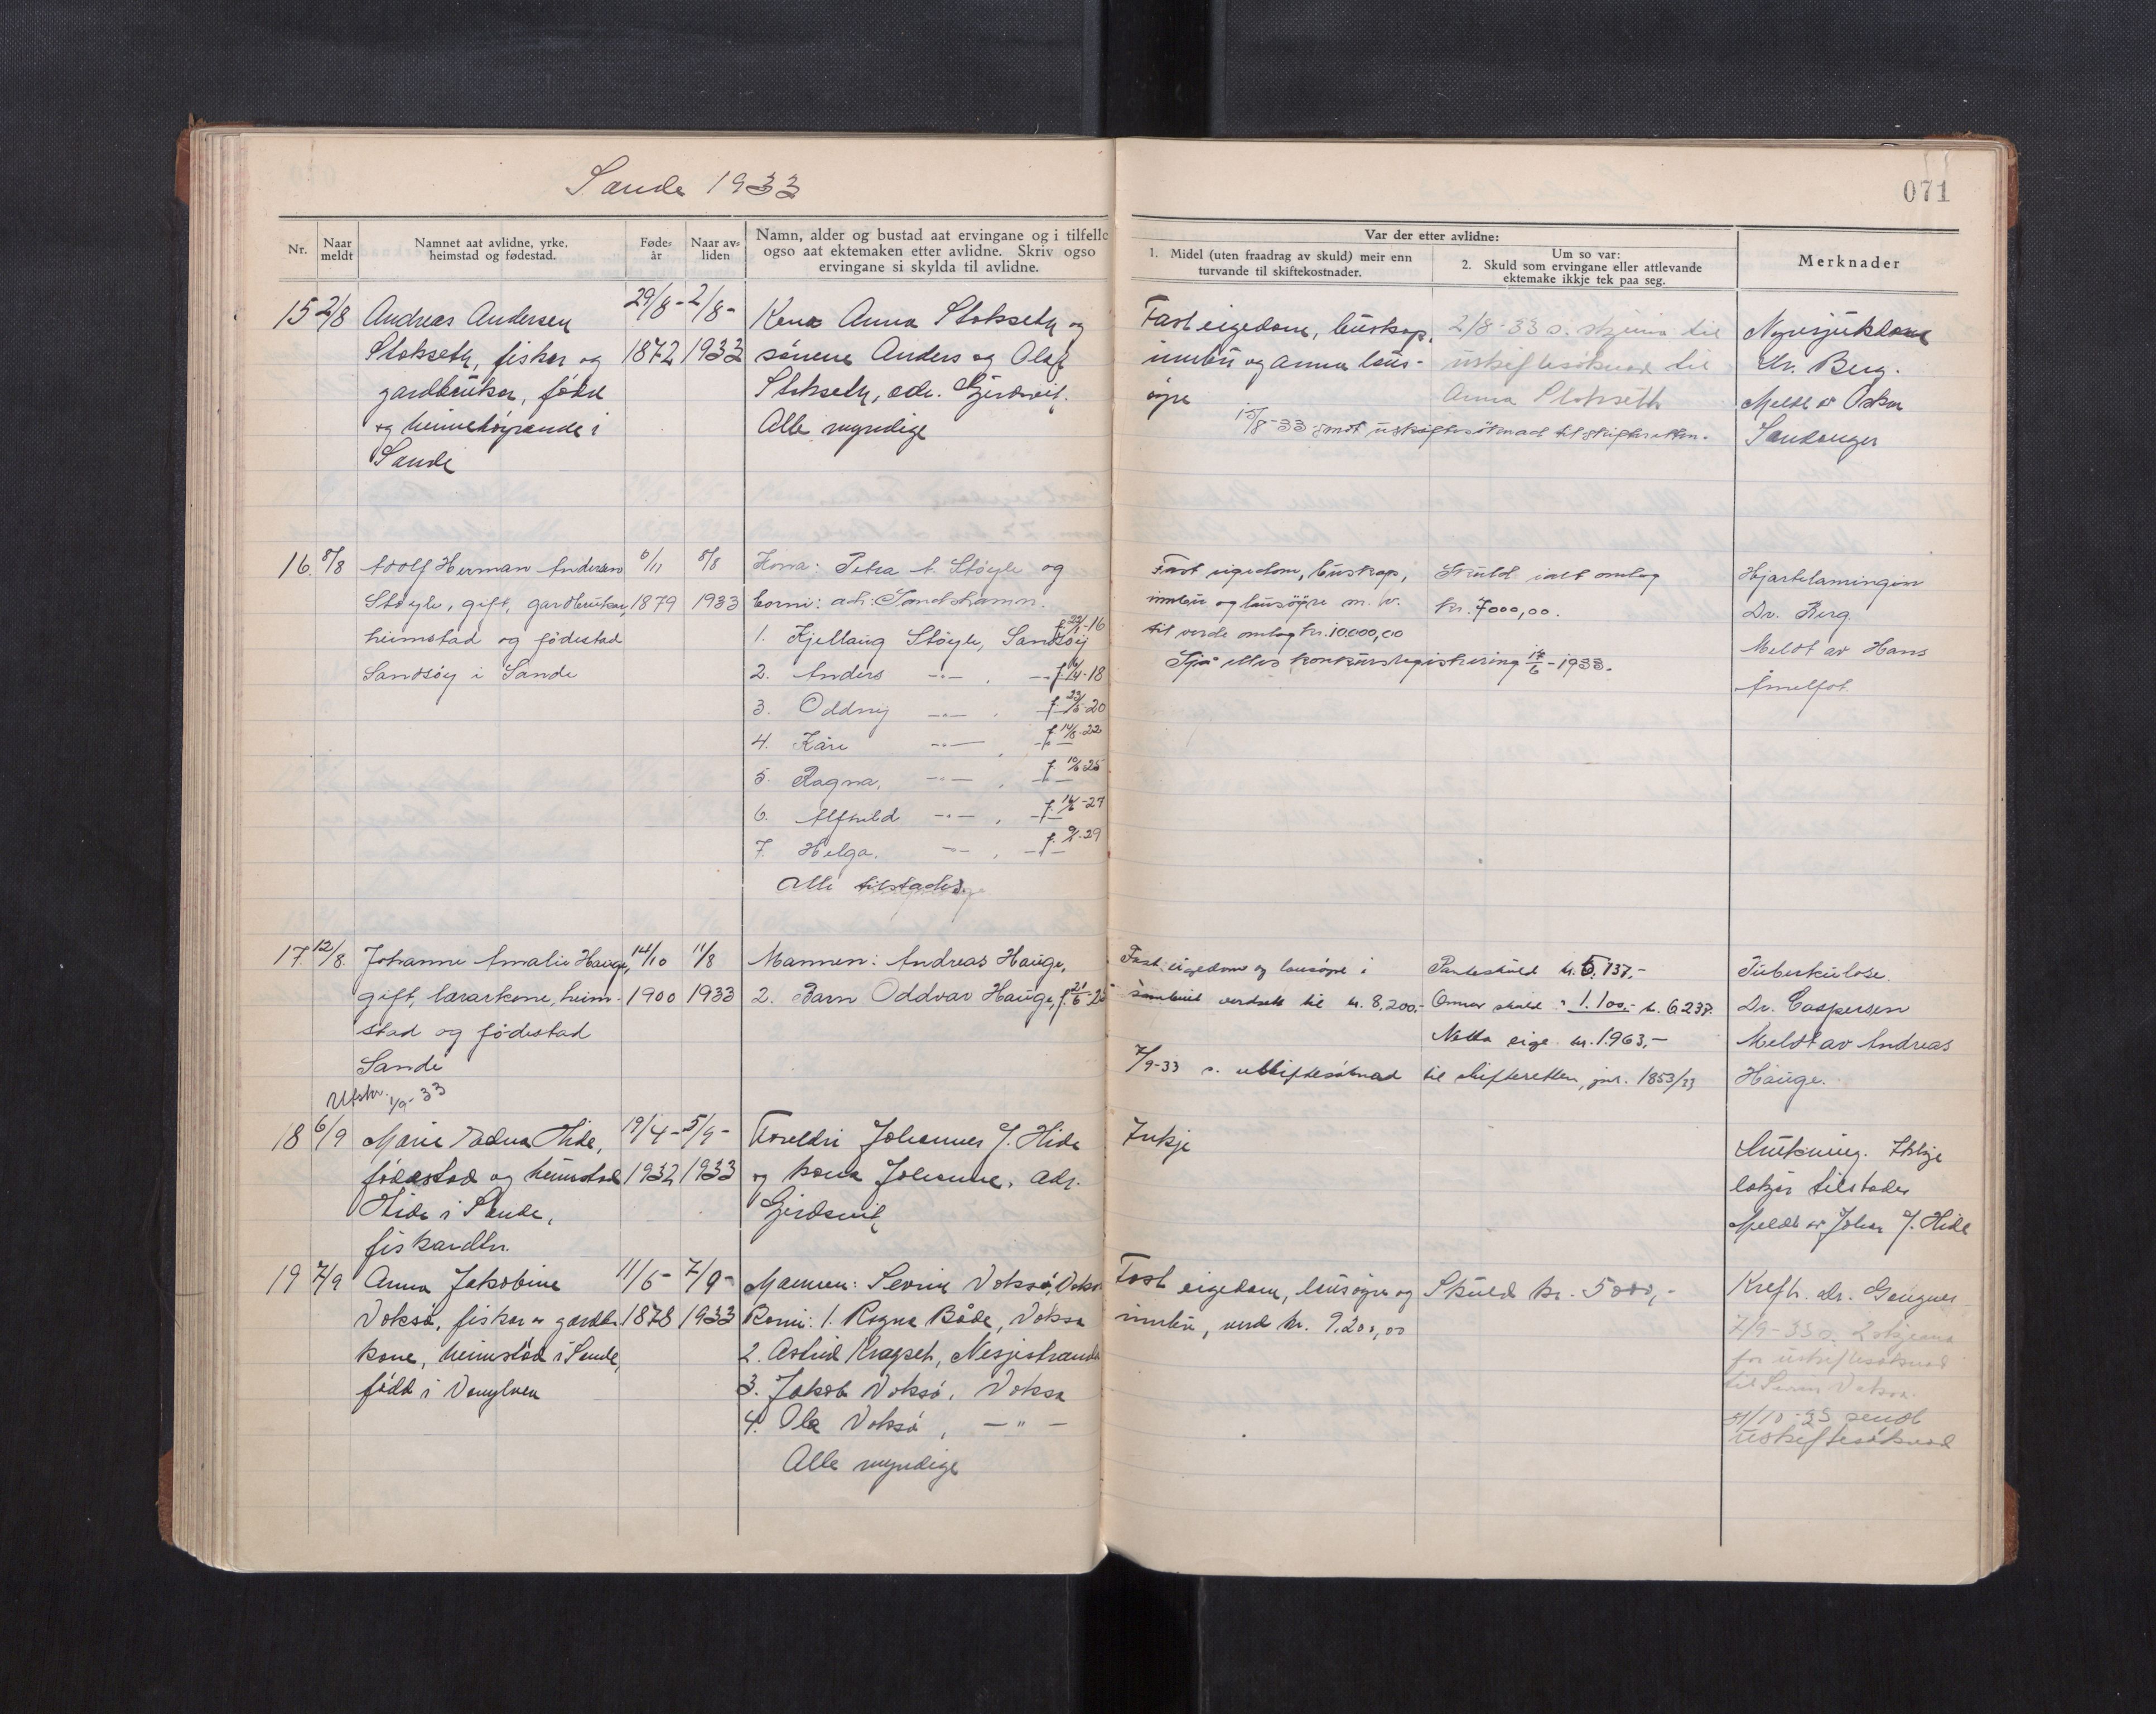 Sande 1933
071
Nr.
Naar meldt
Namnet aat avlidne, yrke, heimstad og fødestad.
Føde-år
Naar av-liden
Namn, alder og bustad aat ervingane og i tilfelle
ogso aat ektemaken etter avlidne. Skriv ogso
ervingane si skylda til avlidne.
Var der etter avlidne:
1. Midel (uten fraadrag av skuld) meir enn
turvande til skiftekostnader.
Um so var:
2. Skuld som ervingane eller attlevande
ektemake ikkje tek paa seg.
Merknader
15 2/8 Andreas Andersen
Stokseth, fiskar og
gardbrukar, fødd
og heimehøyrande i
Sande
29/8-
1872
2/8-
1933
Kona Anna Stokseth og
sønene Anders og Olaf
Stokseth, adr. Gjerdsvik.
Alle myndige
Fast eigedom, buskap,
innbu og anna laus-
øyre
2/8-33 s. skjema til
uskiftesøknad til
Anna Stokseth
15/8-33 sendt uskiftesøknad til skifteretten.
Nyresjukdom
Dr. Berg.
Meldt av Oskar
Sandanger
16. 8/8 Adolf Herman Andersen
Støyle, gift, gardbrukar,
heimstad og fødestad
Sandsøy i Sande
6/11
1879
8/8
1933
Kona: Petra A. Støyle og
borni: adr: Sandshamn.
1. Kjellaug Støyle, Sandsøy
2. Anders —"— , —"— -18
3. Oddny —"— , —"— -20
4. Kåre —"— , —"— f. 14/8-22
5. Ragna, —"— , —"— -25
6. Alfhild —"— , —"— -27
7. Helga. —"— , —"— -29
Alle tilstades.
Fast eigedom, buskap,
innbu og lausøyre m. v.
til verde omlag kr. 10.000,00
Sjå elles konkursregistrering 17/6-1933.
Skuld ialt omlag
kr. 7000,00.
Hjartelamingen
Dr. Berg.
Meldt av Hans
Åmelfot.
17. 12/8. Johanne Amalie Hauge,
gift, lærarkone, heim-
stad og fødestad
Sande
14/10
1900
11/8
1933
Mannen: Andreas Hauge,
2. Barn Oddvar Hauge, f. 21/6-25
Fast eigedom og lausøyre i
sambuet verdsett til kr. 8.200,-
Panteskuld kr. 5.137,-
Annar skuld " 1.100,- kr. 6237.
Netto eige kr. 1.963,-
7/9-33 s. uskiftesøknad til skifteretten, jnr. 1853/33
Tuberkulose.
Dr. Caspersen
Meldt av Andreas
Hauge.
Utskr. 1/9-33
18 6/9 Marie Hide,
fødestad og heimstad
Hide i Sande,
fiskardtr.
19/4-
1932
5/9-
1933
Foreldri Johannes J. Hide
og kona Johanne, adr.
Gjerdsvik
Inkje
Ikkje
lækjar tilstades
Meldt av Johan J. Hide
19 7/9 Anna Jakobine
Voksø, fiskar og gardbr.
kone, heimstad i Sande,
fødd i Vanylven
11/6-
1878
7/9-
1933
Mannen: Severin Voksø, Voksa
Borni: 1. Ragna Både, Voksa
2. Astrid Kragset, Nesjestranda
3. Jakob Voksø, Voksa
4. Ola Voksø, — " —
Alle myndige
Fast eigedom, lausøyre og
innbu, verd kr. 9.200,00
Skuld kr. 5000,-
Kreft. dr. Gaugnes
7/9-33 s. 2 skjema
for uskiftesøknad
til Severin Voksø.
31/10-33 sendt
uskiftesøknad